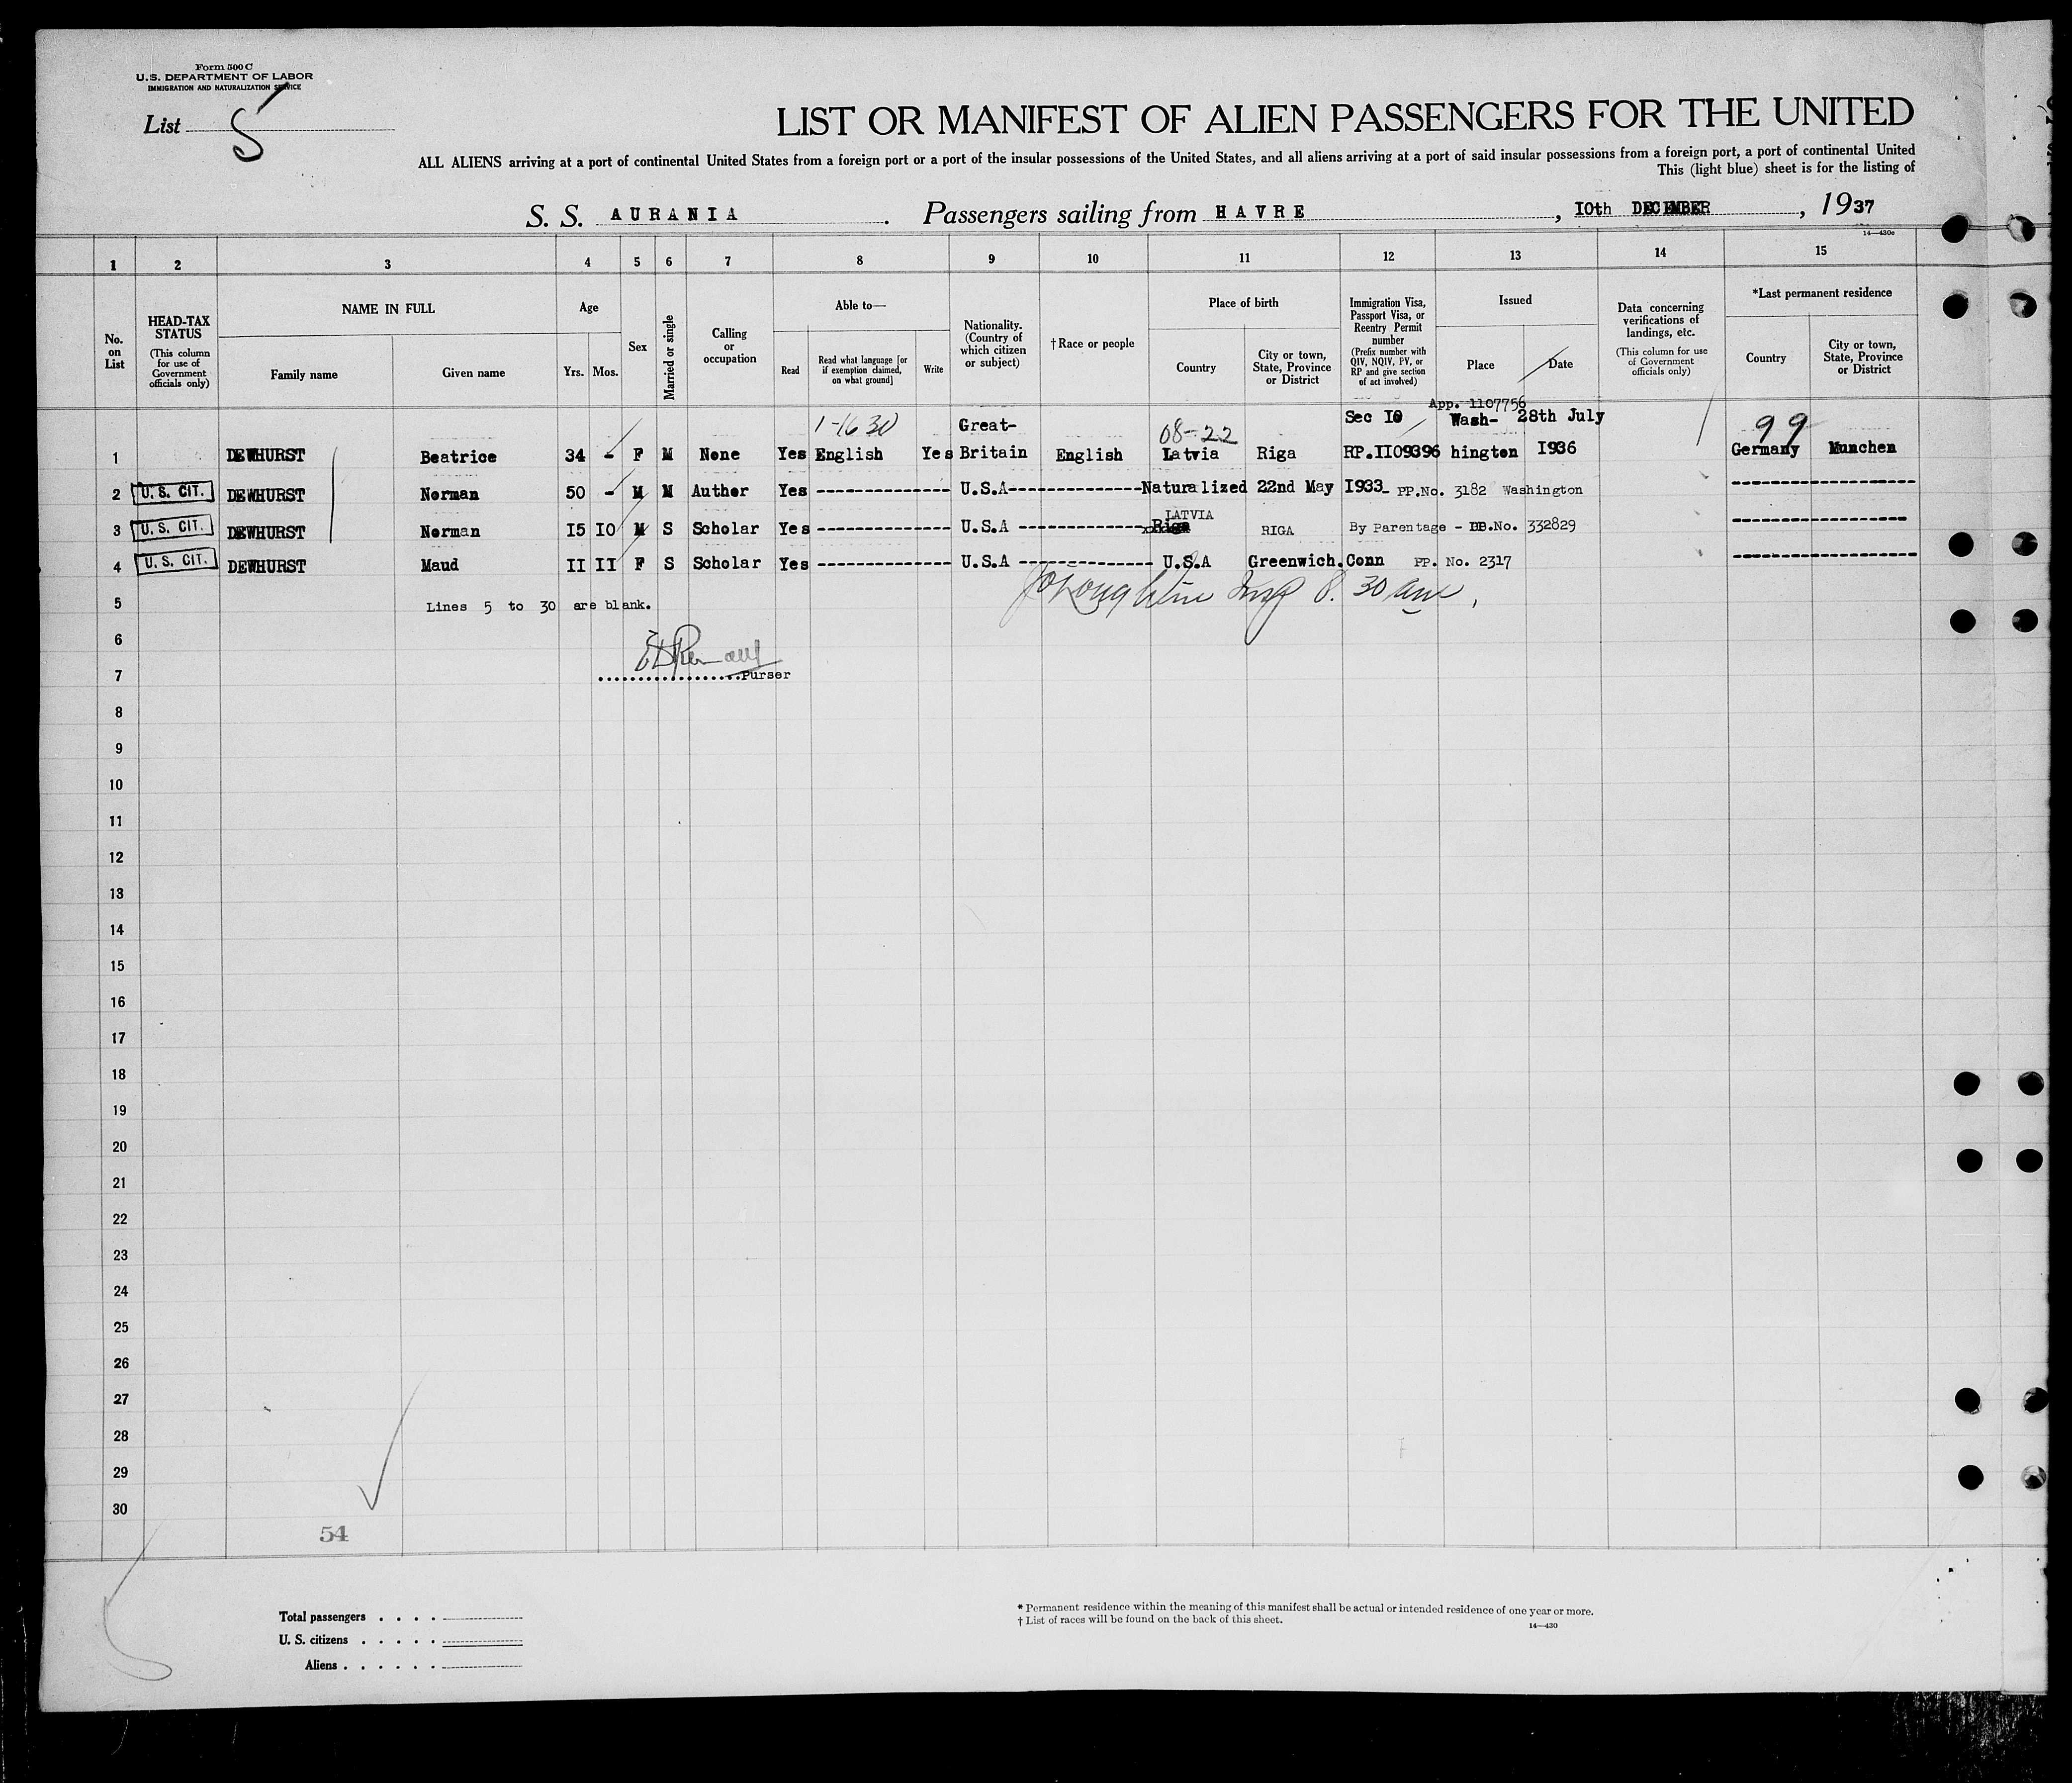 Form 500 C
U.S. DEPARTMENT OF LABOR
IMMIGRATION AND NATURALIZATION SERVICE
List 5
LIST OR MANIFEST OF ALIEN PASSENGERS FOR THE UNITED
ALL ALIENS arriving at a port of continental United States from a foreign port or a port of the insular possessions of the United States, and all aliens arriving at a port of said insular possessions from a foreign port, a port of continental United
This (light blue) sheet is for the listing of
S. S. AURANIA. Passengers sailing from HAVRE, I0th DECEMBER, 1937
14—430c
1 2 3 4 5 6 7 8 9 10 11 12 13 14 15
No. on List
HEAD-TAX STATUS
(This column for use of Government officials only)
NAME IN FULL
Family name
Given name
Age
Yrs. Mos.
Sex
Married or single
Calling or occupation
Able to—
Read
Read what language [or if exemption claimed, on what ground]
Write
Nationality. (Country of which citizen or subject)
†Race or people
Place of birth
Country
City or town, State, Province or District
Immigration Visa, Passport Visa, or Reentry Permit number
(Prefix number with QIV, NQIV, PV, or RP and give section of act involved)
Issued
Place
Date
Data concerning verifications of landings, etc.
(This column for use of Government officials only)
*Last permanent residence
Country
City or town, State, Province or District
App. 1107756
1-1630 Great- 08-22 Sec I0 Wash- 28th July 99
1 DEWHURST Beatrice 34 - F M None Yes English Yes Britain English Latvia Riga RP.II09396 hington I936 Germany Munchen
2 U. S. CIT. DEWHURST Norman 50 - M M Author Yes -------------- U.S.A--------------Naturalized 22nd May I933_ PP.No. 3182 Washington --------------------
LATVIA
3 U. S. CIT. DEWHURST Norman I5 I0 M S Scholar Yes -------------- U.S.A -------------- Riga RIGA By Parentage - No. 332829 --------------------
4 U. S. CIT. DEWHURST Maud II II F S Scholar Yes -------------- U.S.A -------------- U.S.A Greenwich.Conn PP. No. 2317 --------------------
5 Lines 5 to 30 are blank.
Insp 8.30 am,
6
7 ..................Purser
8
9
10
11
12
13
14
15
16
17
18
19
20
21
22
23
24
25
26
27
28
29
30
54
Total passengers . . . .
U. S. citizens . . . . .
Aliens . . . . . .
* Permanent residence within the meaning of this manifest shall be actual or intended residence of one year or more.
† List of races will be found on the back of this sheet.
14—430